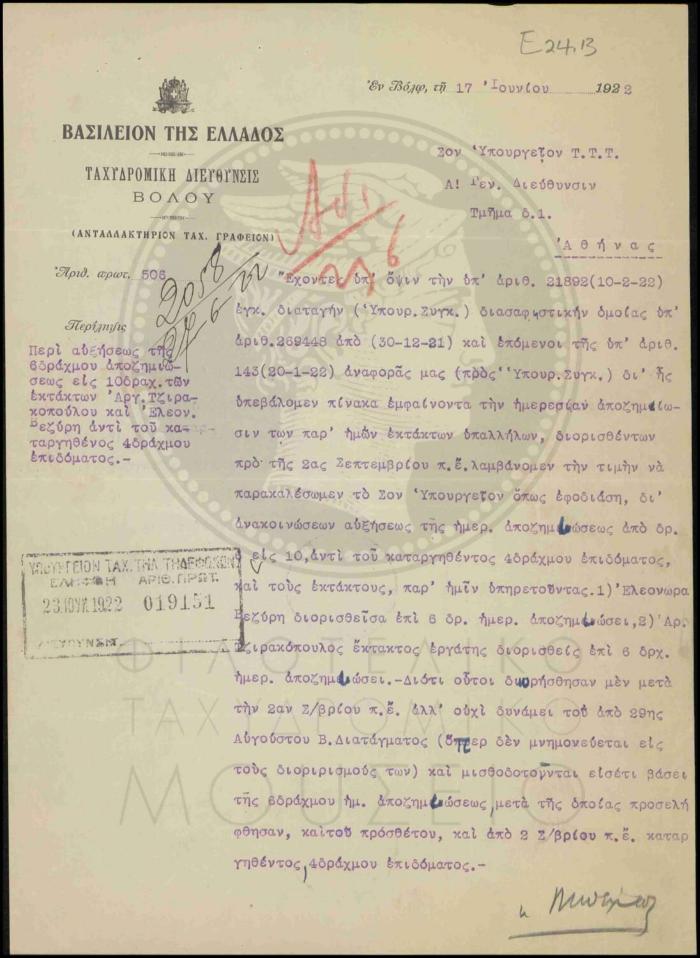 Ε24.Β
Ἐν Βόλῳ, τῇ 17 Ἰουνίου 1922
ΒΑΣΙΛΕΙΟΝ ΤΗΣ ΕΛΛΑΔΟΣ
ΤΑΧΥΔΡΟΜΙΚΗ ΔΙΕΥΘΥΝΣΙΣ
ΒΟΛΟΥ
(ΑΝΤΑΛΛΑΚΤΗΡΙΟΝ ΤΑΧ. ΓΡΑΦΕΙΟΝ)
Ἀριθ. πρωτ. 506
2058
Περίληψις
Περὶ αὐξήσεως τῆς
6δράχμου ἀποζημιώ
σεως εἰς 10δραχ. τῶν
ἐκτάκτων Ἀργ.Τζιρα-
κοπούλου καὶ Ἐλεον.
Βεζύρη ἀντὶ τοῦ κα-
ταργηθένος 4δράχμου
ἐπιδόματος.-
ΥΠΟΥΡΓΕΙΟΝ ΤΑΧ. ΤΗΛ. ΤΗΛΕΦΩΝΩΝ
ΕΛΗΦΘΗ ΑΡΙΘ. ΠΡΩΤ.
23.ΙΟΥΝ.1922 019151
ΔΙΕΥΘΥΝΣΙΣ
Σον Ὑπουργεῖον Τ.Τ.Τ.
Α! Γεν. Διεύθυνσιν
Τμῆμα δ.1.
Ἀθήνας
Ἔχοντες ὑπ' ὄψιν τὴν ὑπ' ἀριθ. 21892(10-2-22)
ἐγκ. διαταγήν (Ὑπουρ.Συγκ.) διασαφιστικήν ὁμοίας ὑπ'
ἀριθ.269448 ἀπὸ (30-12-21) καὶ ἑπόμενοι τῆς ὑπ' ἀριθ.
143(20-1-22) ἀναφορᾶς μας (πρὸς Ὑπουρ.Συγκ.) δι' ἧς
ὑπεβάλομεν πίνακα ἐμφαίνοντα τὴν ἡμερεσίαν ἀποζημίω-
σιν των παρ' ἡμῶν ἐκτάκτων ὑπαλλήλων, διορισθέντων
πρὸ τῆς 2ας Σεπτεμβρίου π.ἔ.λαμβάνομεν τὴν τιμὴν νὰ
παρακαλέσωμεν τὸ Σον Ὑπουργεῖον ὅπως ἐφοδιάσῃ, δι'
ἀνακοινώσεων αὐξήσεως τῆς ἡμερ. ἀποζημιώσεως ἀπὸ δρ.
6 εἰς 10,ἀντὶ τοῦ καταργηθέντος 4δράχμου ἐπιδόματος,
καὶ τοὺς ἐκτάκτους, παρ' ἡμῖν ὑπηρετοῦντας.1) Ἐλεονωρα
Βεζύρη διορισθεῖσα ἐπὶ 6 δρ. ἡμερ. ἀποζημιώσει,2) Ἀρ.
Τζιρακόπουλος ἔκτακτος ἐργάτης διορισθεὶς ἐπὶ 6 δρχ.
ἡμερ. ἀποζημιώσει.-Διότι οὗτοι διορήσθησαν μὲν μετὰ
τὴν 2αν Σ/βρίου π.ἔ. ἀλλ' οὐχὶ δυνάμει τοῦ ἀπὸ 29ης
Αὐγούστου Β.Διατάγματος (ὅπερ δὲν μνημονεύεται εἰς
τοὺς διοριρισμούς των) καὶ μισθοδοτοῦνται εἰσέτι βάσει
τῆς 6δράχμου ἡμ. ἀποζημιώσεως,μετὰ τῆς ὁποίας προσελή
φθησαν, καὶτοῦ πρόσθέτου, καὶ ἀπὸ 2 Σ/βρίου π.ἔ. καταρ
γηθέντος,4δράχμου ἐπιδόματος.-
ΦΙΛΟΤΕΛΙΚΟ
ΤΑΧΥΔΡΟΜΙΚΟ
ΜΟΥΣΕΙΟ